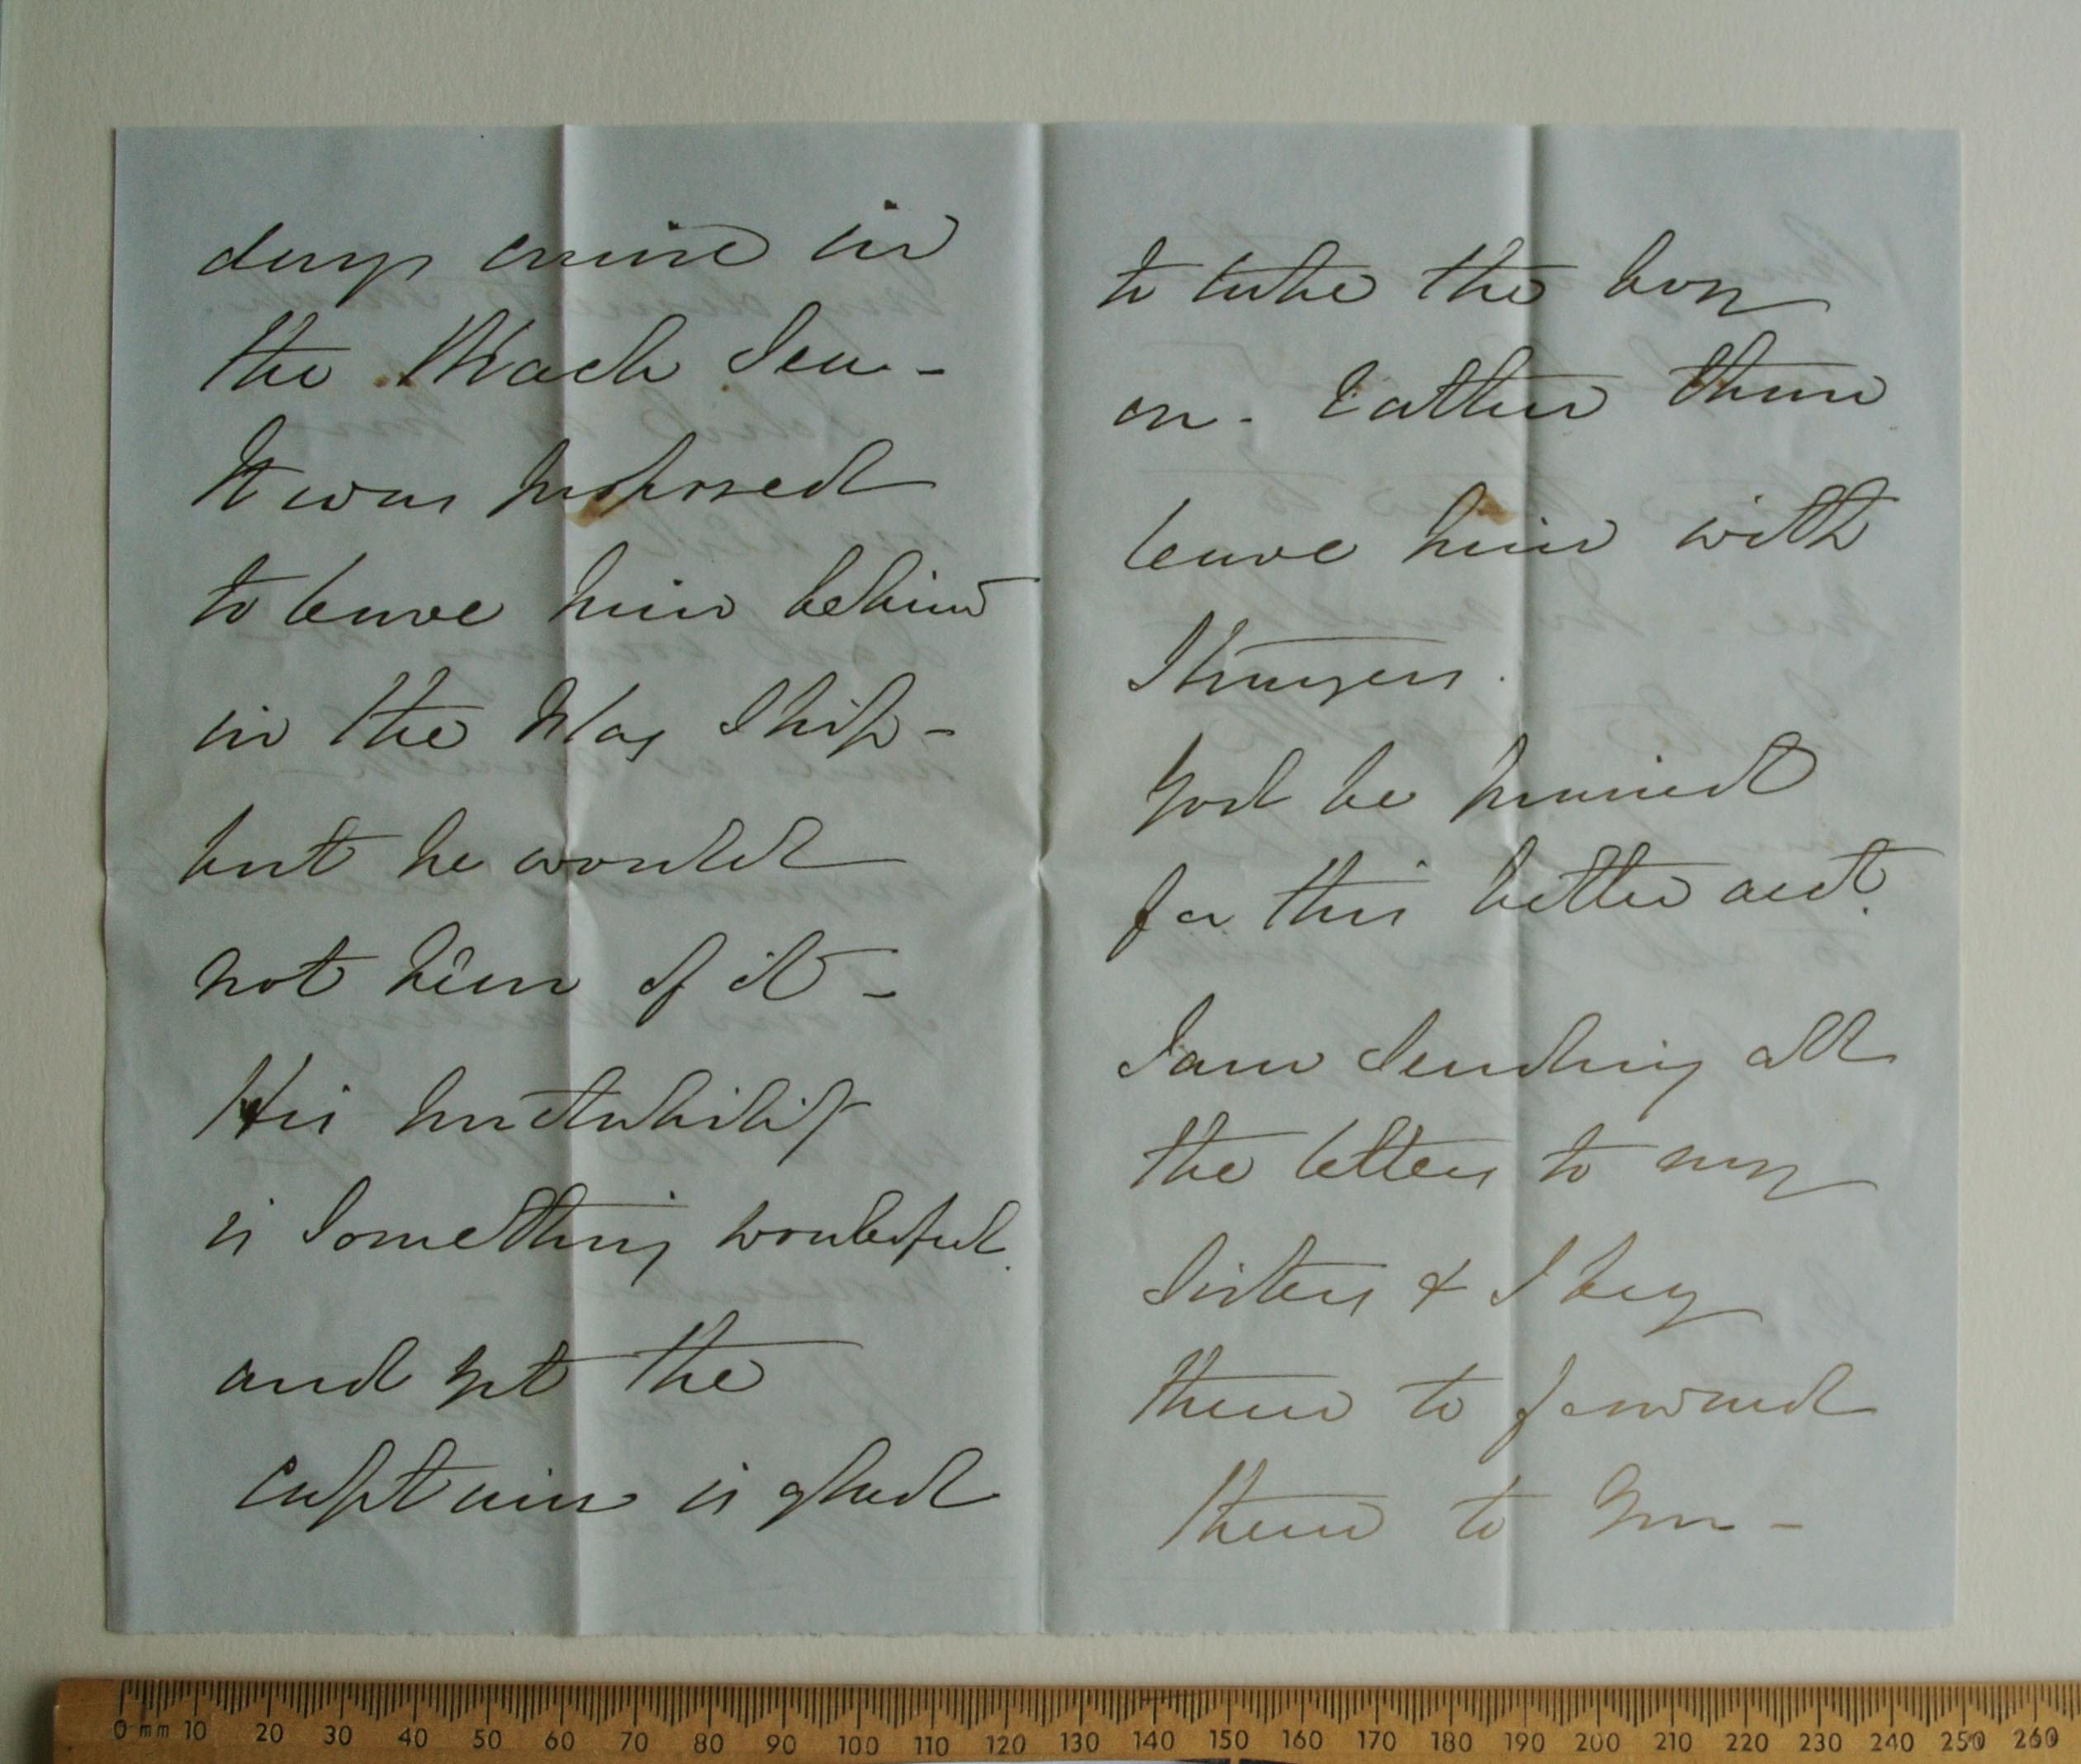 days cruise in
the Black Sea -
It was proposed
to leave him behind
in the Flag Ship -
but he would
not hear of it -
His
is something wonderful.
and yet the
Captain is glad
to take the boy
on - rather than
leave him with
Strangers.
God be praised
for this better acct.
I am sending all
the letters to my
Sisters & I beg
them to forward
them to you -
0 mm 10 20 30 40 50 60 70 80 90 100 110 120 130 140 150 160 170 180 190 200 210 220 230 240 250 260